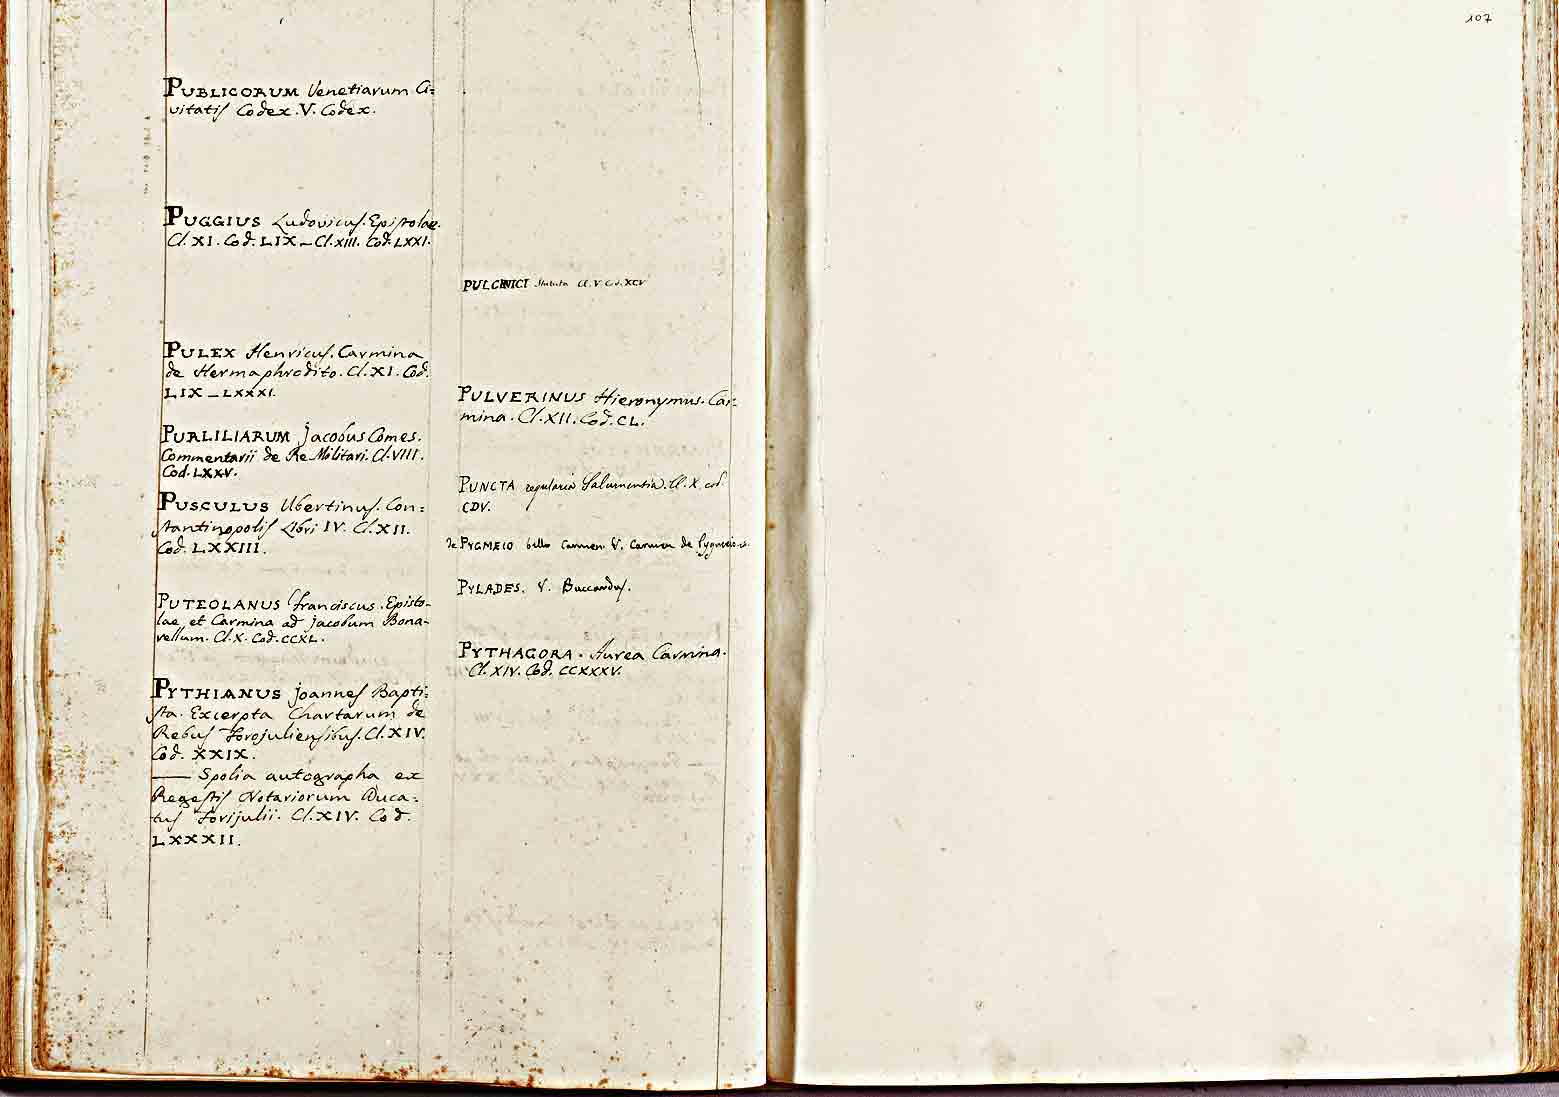 107
PUBLICORUM Venetiarum Ci=
vitatis Codex. V. Codex.
PUGGIUS Ludovicus. Epistolae.
Cl. XI. Cod. LIX – Cl. XIII. Cod. LXXI.
PULEX Henricus. Carmina
de Hermaphrodito. Cl. XI. Cod.
LIX – LXXXI.
PURLILIARUM Jacobus Comes.
Commentarii de Re Militari. Cl. VIII.
Cod. LXXV.
PUSCULUS Ubertinus. Con=
stantinopolis Libri IV. Cl. XII.
Cod. LXXIII.
PUTEOLANUS Franciscus. Episto-
lae et Carmina ad Jacobum Bona-
vellum. Cl. X. Cod. CCXL.
PYTHIANUS Joannes Bapti=
sta. Excerpta Chartarum de
Rebus Forojuliensibus. Cl. XIV.
Cod. XXIX.
—— Spolia autographa ex
Regestis Notariorum Duca=
tus Forijulii. Cl. XIV. Cod.
LXXXII.
Statuta Cl. V Cod. XCV
PULVERINUS Hieronymus. Car=
mina. Cl. XII. Cod. CL.
PUNCTA regularia Cl. X. cod.
CDV.
de PYGMEIO bello Carmen V. Carmen de
PYLADES. V. Buccardus.
PYTHAGORA. Aurea Carmina.
Cl. XIV. Cod. CCXXXV.